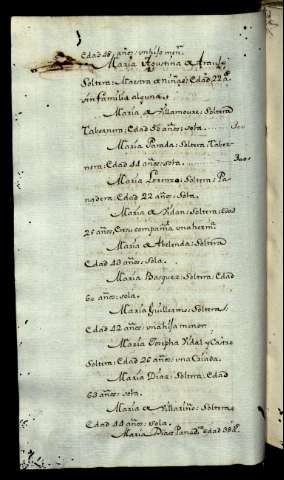 Edad 48 años: un hijo men.r
María Agustina de Araujo
Soltera: Maestra de niñas: Edad 22 a.s
sin familia alguna.
María de Villamoure: Soltera
Tabernera: Edad 56 años: sola.
María Parada: Soltera Taber-
nera: Edad 44 años: sola.
María Lorenzo: Soltera: Pa-
nadera: Edad 22 años. Sola.
María de Vidan: Soltera: Edad
25 años, En su compañía una herm.a
María de Abelenda: Soltera
Edad 40 años: Sola.
María Basquez: Soltera: Edad
60 años: sola.
María Guillermo: Soltera:
Edad 42 años: una hija menor.
María Josepha Vidal y Castro
Soltera: Edad 26 años: una Criada.
María Díaz: Soltera: Edad
63 años: sola.
María de Villariño: Soltera
Edad 44 años: sola.
María Díaz Panad.a edad 38 a.s